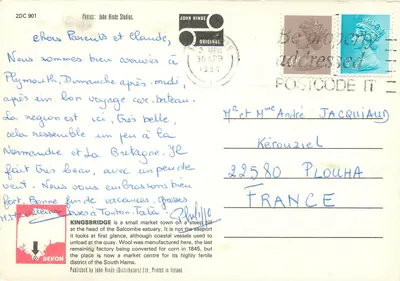 2DC 901
Photos: John Hinde Studios.
JOHN HINDE
ORIGINAL
chers Parents et Claude,
Nous sommes bien arrivés à
Plymouth, Dimanche après-midi,
après un bon voyage car-bateau.
La région est ici, très belle,
cela ressemble un peu à la
Normandie et La Bretagne. Il
fait très beau, avec un peu de
vent. Nous vous embrassons bien
fort. Bonne fin de vacances. Grosses
bises
30 APR
1984
Be properly
addressed
POSTCODE IT
Mr et Mme André JACQUIAUD
Kérouziel
22580 PLOUHA
FRANCE
DEVON
KINGSBRIDGE is a small market town on a steep hill
at the head of the Salcombe estuary. It is not the seaport
it looks at first glance, although coastal vessels used to
unload at the quay. Wool was manufactured here, the last
remaining factory being converted for corn in 1845, but
the place is now a market centre for its highly fertile
district of the South Hams.
Published by John Hinde (Distributors) Ltd., Printed in Ireland.